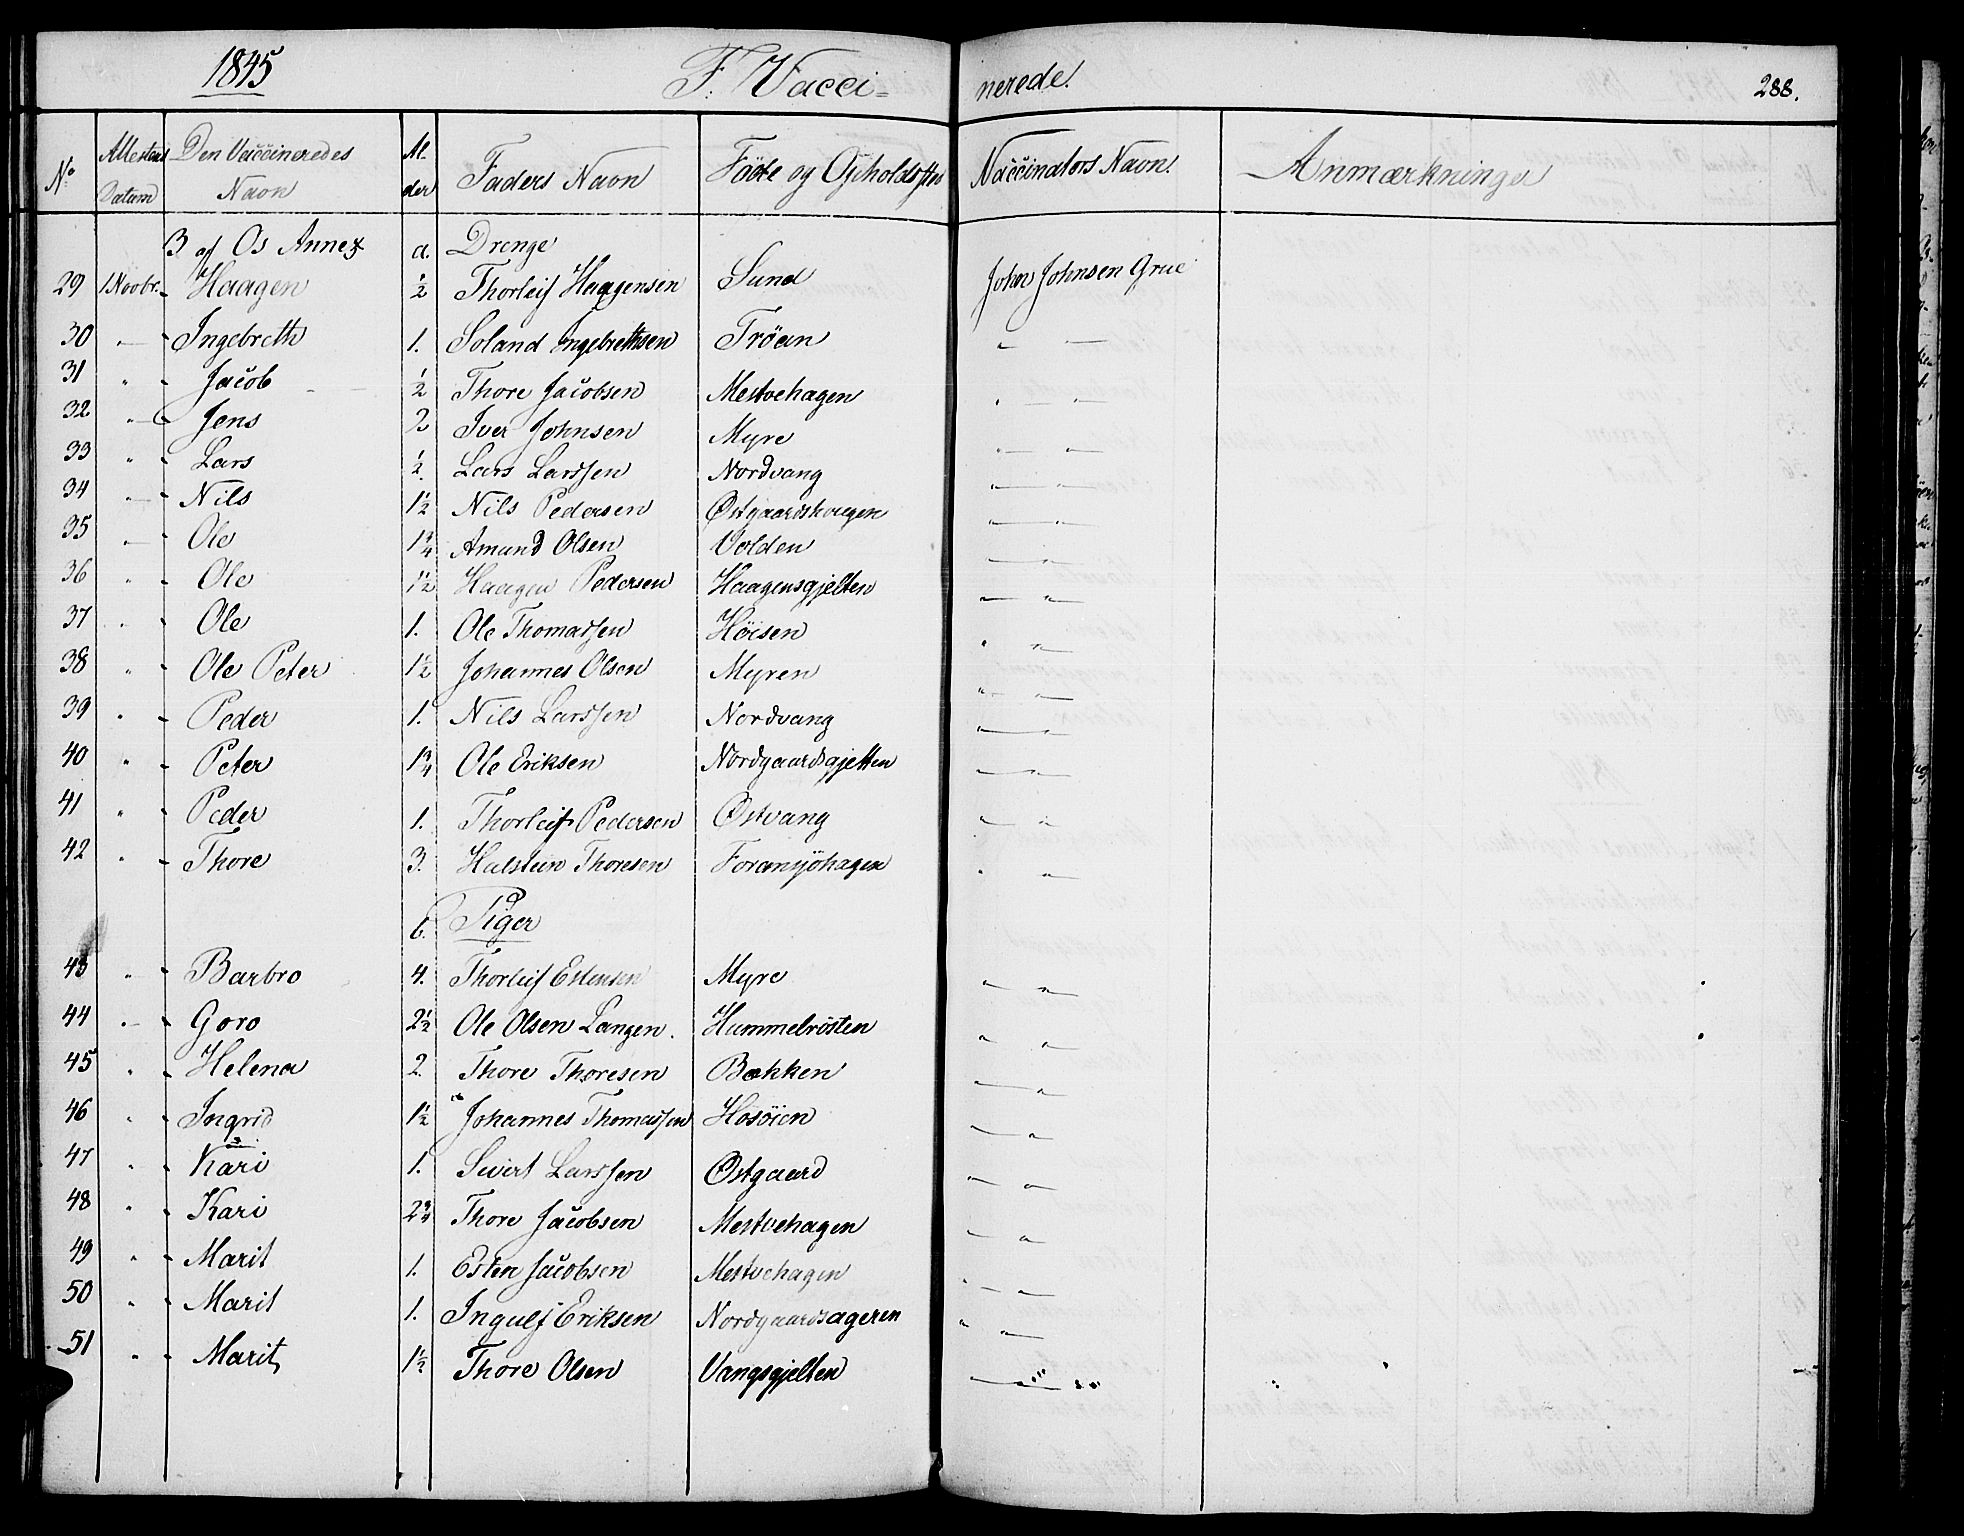 1845 F. Vaccinerede. 288.
No Attestens Datum Den Vaccineredes Navn Alder Faders Navn Føde og Opholdssted Vaccinators Navn. Anmærkninger
3 af Os Annex a. Drenge
29 1 Novbr. Haagen 1/2 Thorleif Haagensen Sund John Johnsen Grue
30 — Ingebreth 1. Ingebrethsen Trøen " —
31 " Jacob 1/2 Thore Jacobsen Mestvehagen " —
32 " Jens 2 Iver Johnsen Myre " —
33 " Lars 1/2 Lars Larssen Nordvang " "
34 " Nils 1 1/2 Nils Pedersen Østgaardshougen " "
35 — Ole 1 3/4 Amund Olsen Volden " "
36 " Ole 1 1/2 Haagen Pedersen Haagensgjelten " "
37 " Ole 1. Ole Thomassen " "
38 " Ole Peter 1 1/2 Johannes Olsen Myren " "
39 " Peder 1. Nils Larssen Nordvang " "
40 " Peter 1 3/4 Ole Eriksen Nordgaardsgjelten " "
41 " Peder 1. Thorleif Pedersen Østvang " "
42 " Thore 3. Halstein Thoresen " "
b. Piger
43 " Barbro 4. Thorleif Estensen Myre " "
44 " Goro 2 1/2 Ole Olsen Langen. Hummelvosten " "
45 " Helena 2. Thore Thoresen Bækken " "
46 " Ingrid 1 1/2 Johannes Thomassen Hosøien " "
47 " Kari 1. Sivert Larssen Østgaard " "
48 " Kari 2 3/4 Thore Jacobsen Mestvehagen " "
49 " Marit 1. Esten Jacobsen Mestvehagen " "
50 " Marit 1. Ingulf Eriksen Nordgaardsageren " "
51 " Marit 1 1/2 Thore Olsen Vangsgjelten " "